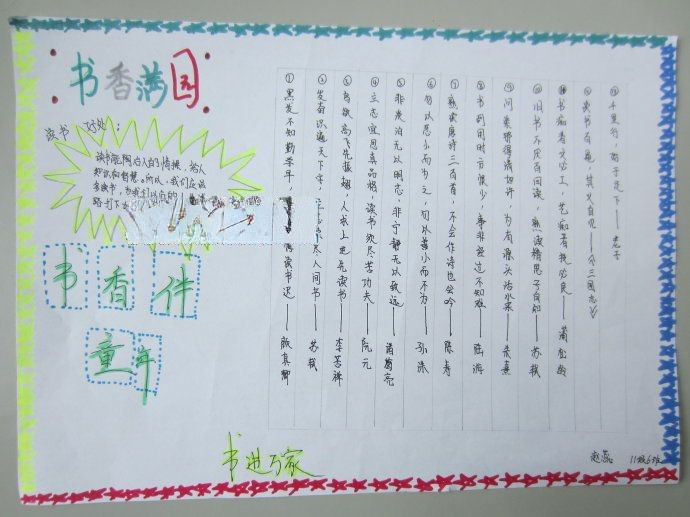 书香满园
读书 好处：
读书能陶冶人的情操，给人
知识和智慧。所以，我们应该
多读书，为我们以后的
路打下
书香伴
童年
书进万家
① 黑发不知勤学早，悔读书迟——颜真卿
② 发奋识遍天下字，尽人间书——苏轼
③ 鸟欲高飞先振翅，人求上进先读书——李苦禅
④ 立志宜思真品格，读书须尽苦功夫——阮元
⑤ 非淡泊无以明志，非宁静无以致远——诸葛亮
⑥ 勿以恶小而为之，勿以善小而不为——孙洙
⑦ 熟读唐诗三百首，不会作诗也会吟——陈寿
⑧ 书到用时方恨少，事非经过不知难——陆游
⑨ 问渠那得清如许，为有源头活水来——朱熹
⑩ 旧书不厌百回读，熟读精思子自知——苏轼
⑪ 书痴者文必工，艺痴者技必良——蒲松龄
⑫ 读书百遍，其义自见——《三国志》
⑬ 千里行，始于足下——老子
赵蕊 11级6班